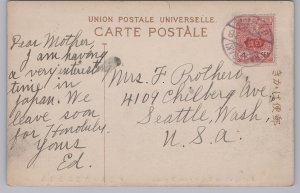 UNION POSTALE UNIVERSELLE.
CARTE POSTALE
Dear Mother,
I am having
a very interesting
time in
Japan. We
leave soon
for Honolulu.
Yours
Ed.
Mrs. F. Prothero,
4109 Chilberg Ave
Seattle, Wash,
U. S. A.
きかは便郵